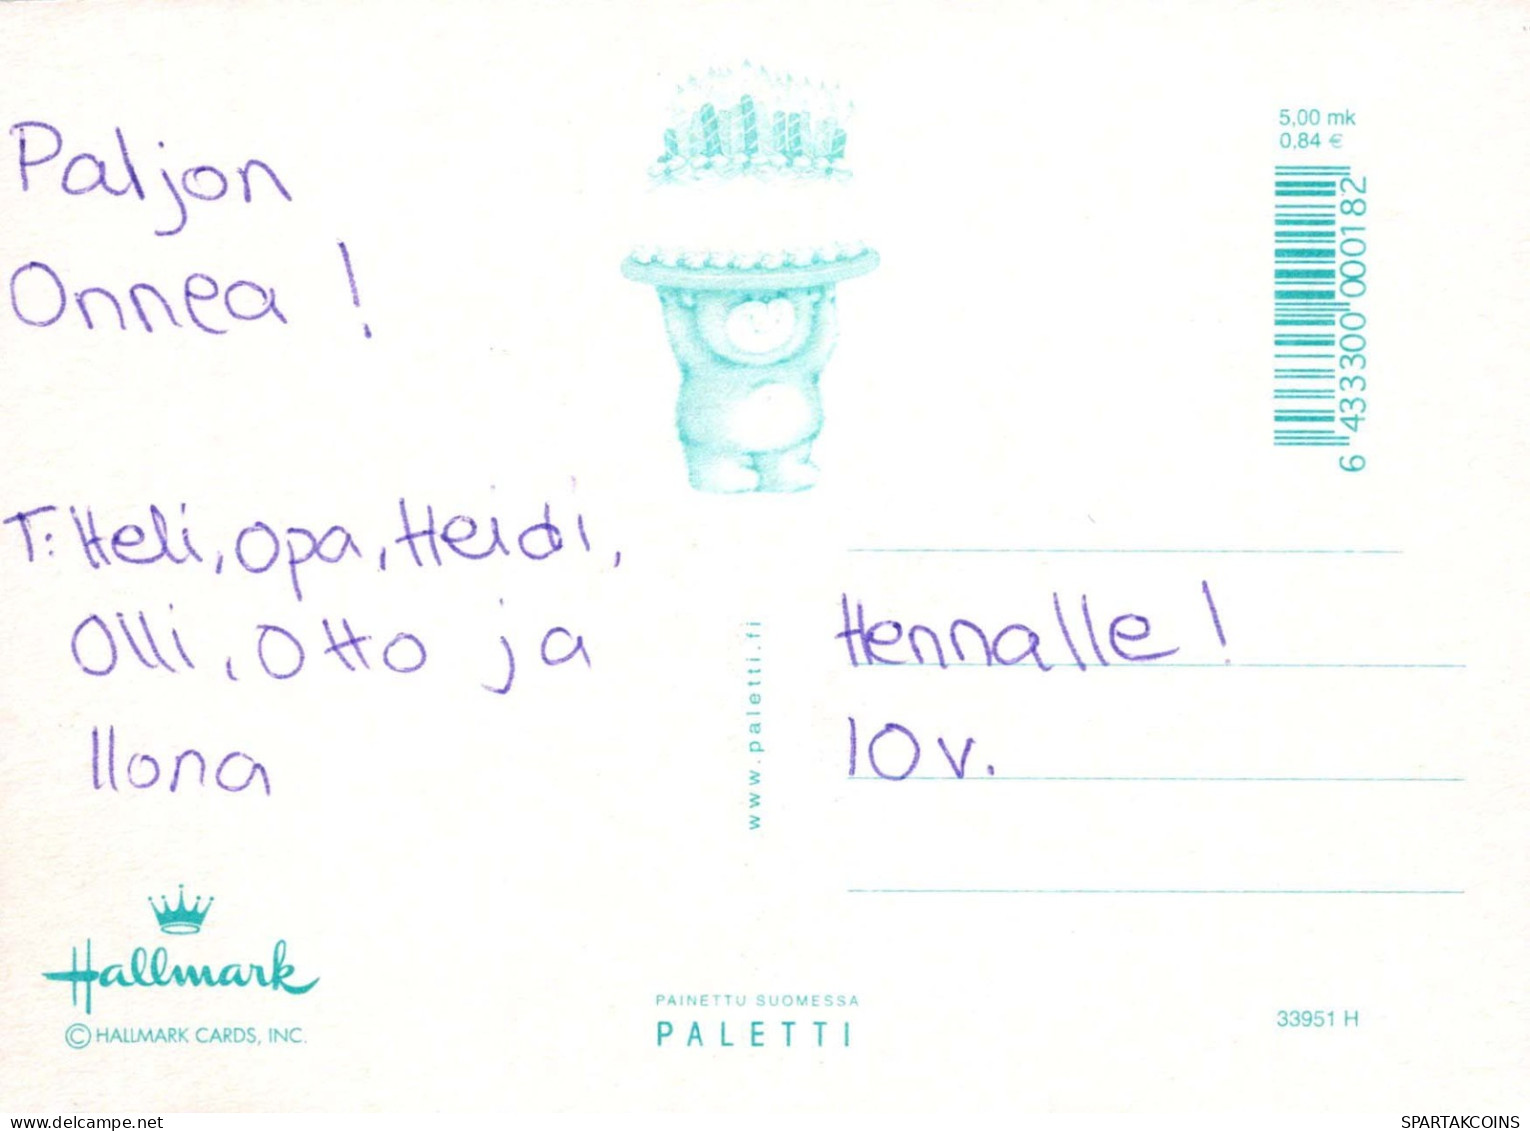 Paljon
Onnea !
T: Heli, Opa, Heidi,
Olli, Otto ja
Ilona
Hallmark
© HALLMARK CARDS, INC.
www.paletti.fi
PAINETTU SUOMESSA
PALETTI
5,00 mk
0,84 €
6 433300 000182
Hennalle !
10 v.
33951 H
delcampe.net
SPARTAKCOINS